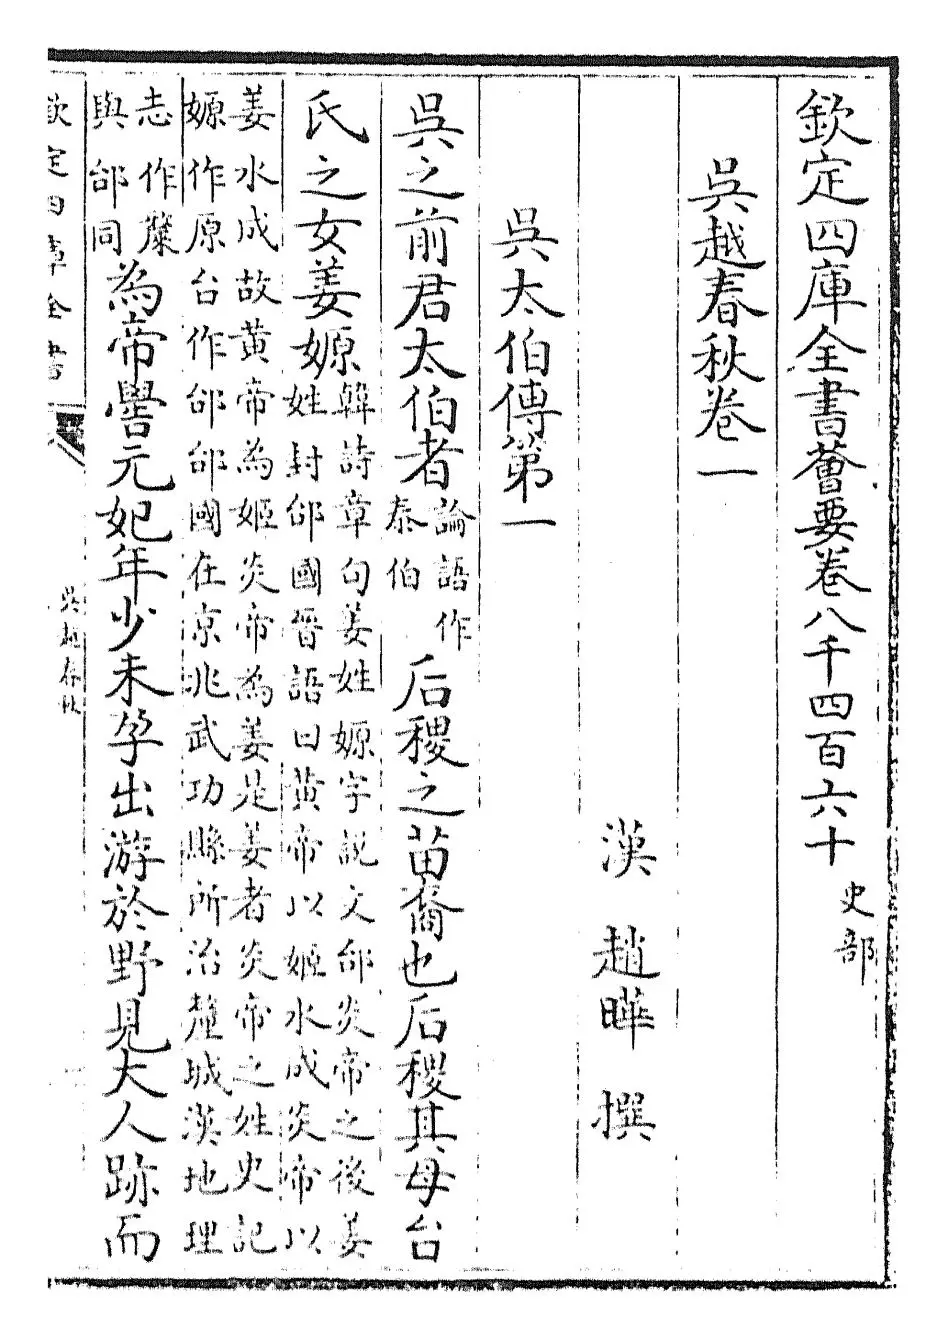 欽定四庫全書薈要卷八千四百六十 史部
吳越春秋卷一
漢 趙曄 撰
吳太伯傳第一
吳之前君太伯者論語作泰伯后稷之苗裔也后稷其母台
氏之女姜嫄韓詩章句姜姓嫄字說文邰炎帝之後姜
姓封邰國晉語曰黃帝以姬水成炎帝以
姜水成故黃帝為姬炎帝為姜是姜者炎帝之姓史記
嫄作原台作邰邰國在京兆武功縣所治釐城漢地理
志作斄與邰同為帝嚳元妃年少未孕出游於野見大人跡而
欽定四庫全書
吳越春秋